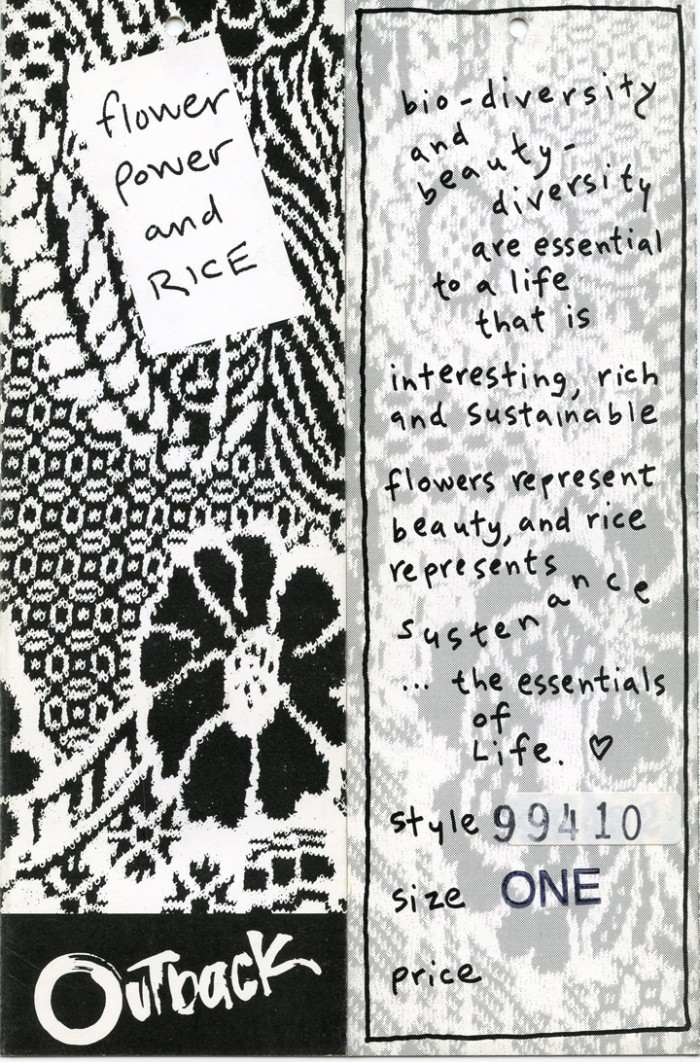 flower
power
and
RICE
OuTback
bio-diversity
and
beauty-
diversity
are essential
to a life
that is
interesting, rich
and sustainable
flowers represent
beauty, and rice
represents
sustenance
... the essentials
of
Life. ♡
style 99410
size ONE
price